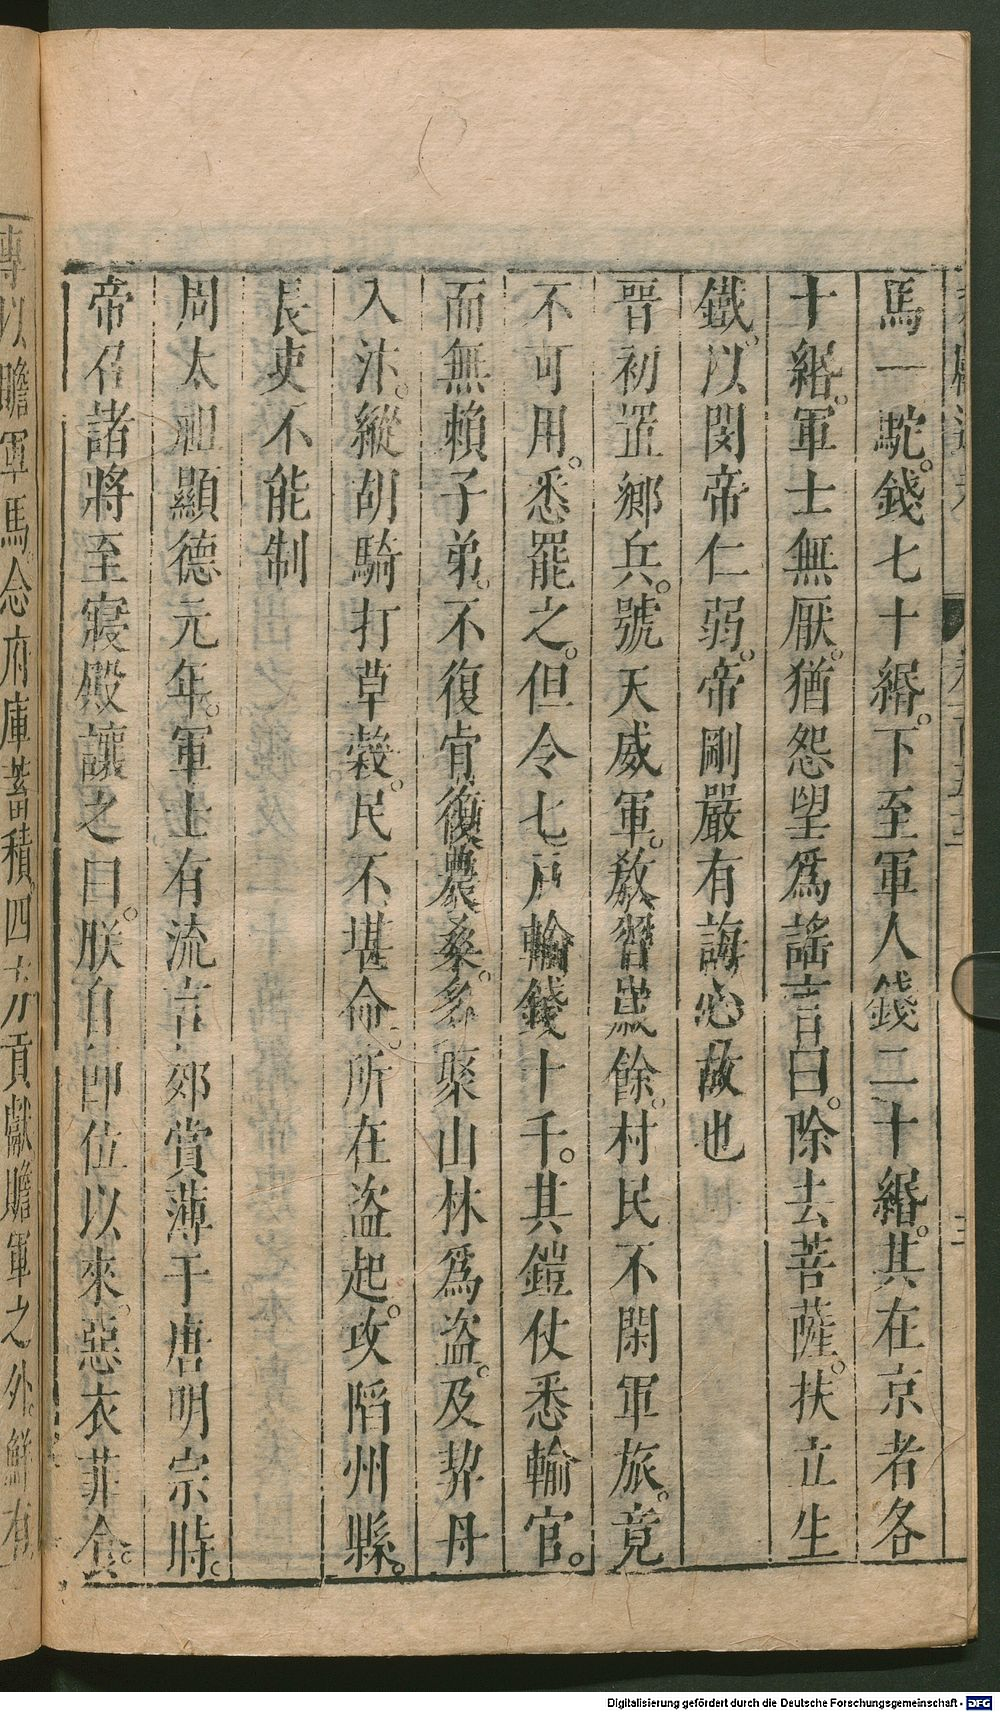 馬一駝。錢七十緡。下至軍人錢二十緡。其在京者各
十緡。軍士無厭。猶怨望爲謠言曰。除去菩薩。扶立生
鐵。以閔帝仁弱。帝剛嚴有誨心故也
晉初置鄉兵。號天威軍。教習歲餘。村民不閑軍旅。竟
不可用。悉罷之。但令七戶輸錢十千。其鎧仗悉輸官。
而無賴子弟。不復肯復農桑。多聚山林爲盗。及契丹
入汴。縱胡騎打草穀。民不堪命。所在盗起。攻陷州縣。
長吏不能制
周太祖顯德元年。軍士有流言郊賞薄于唐明宗時。
帝召諸將至寢殿讓之曰。朕自卽位以來。惡衣菲食。
專以贍軍馬。念府庫蓄積。四方貢獻贍軍之外。鮮有
Digitalisierung gefördert durch die Deutsche Forschungsgemeinschaft - DFG